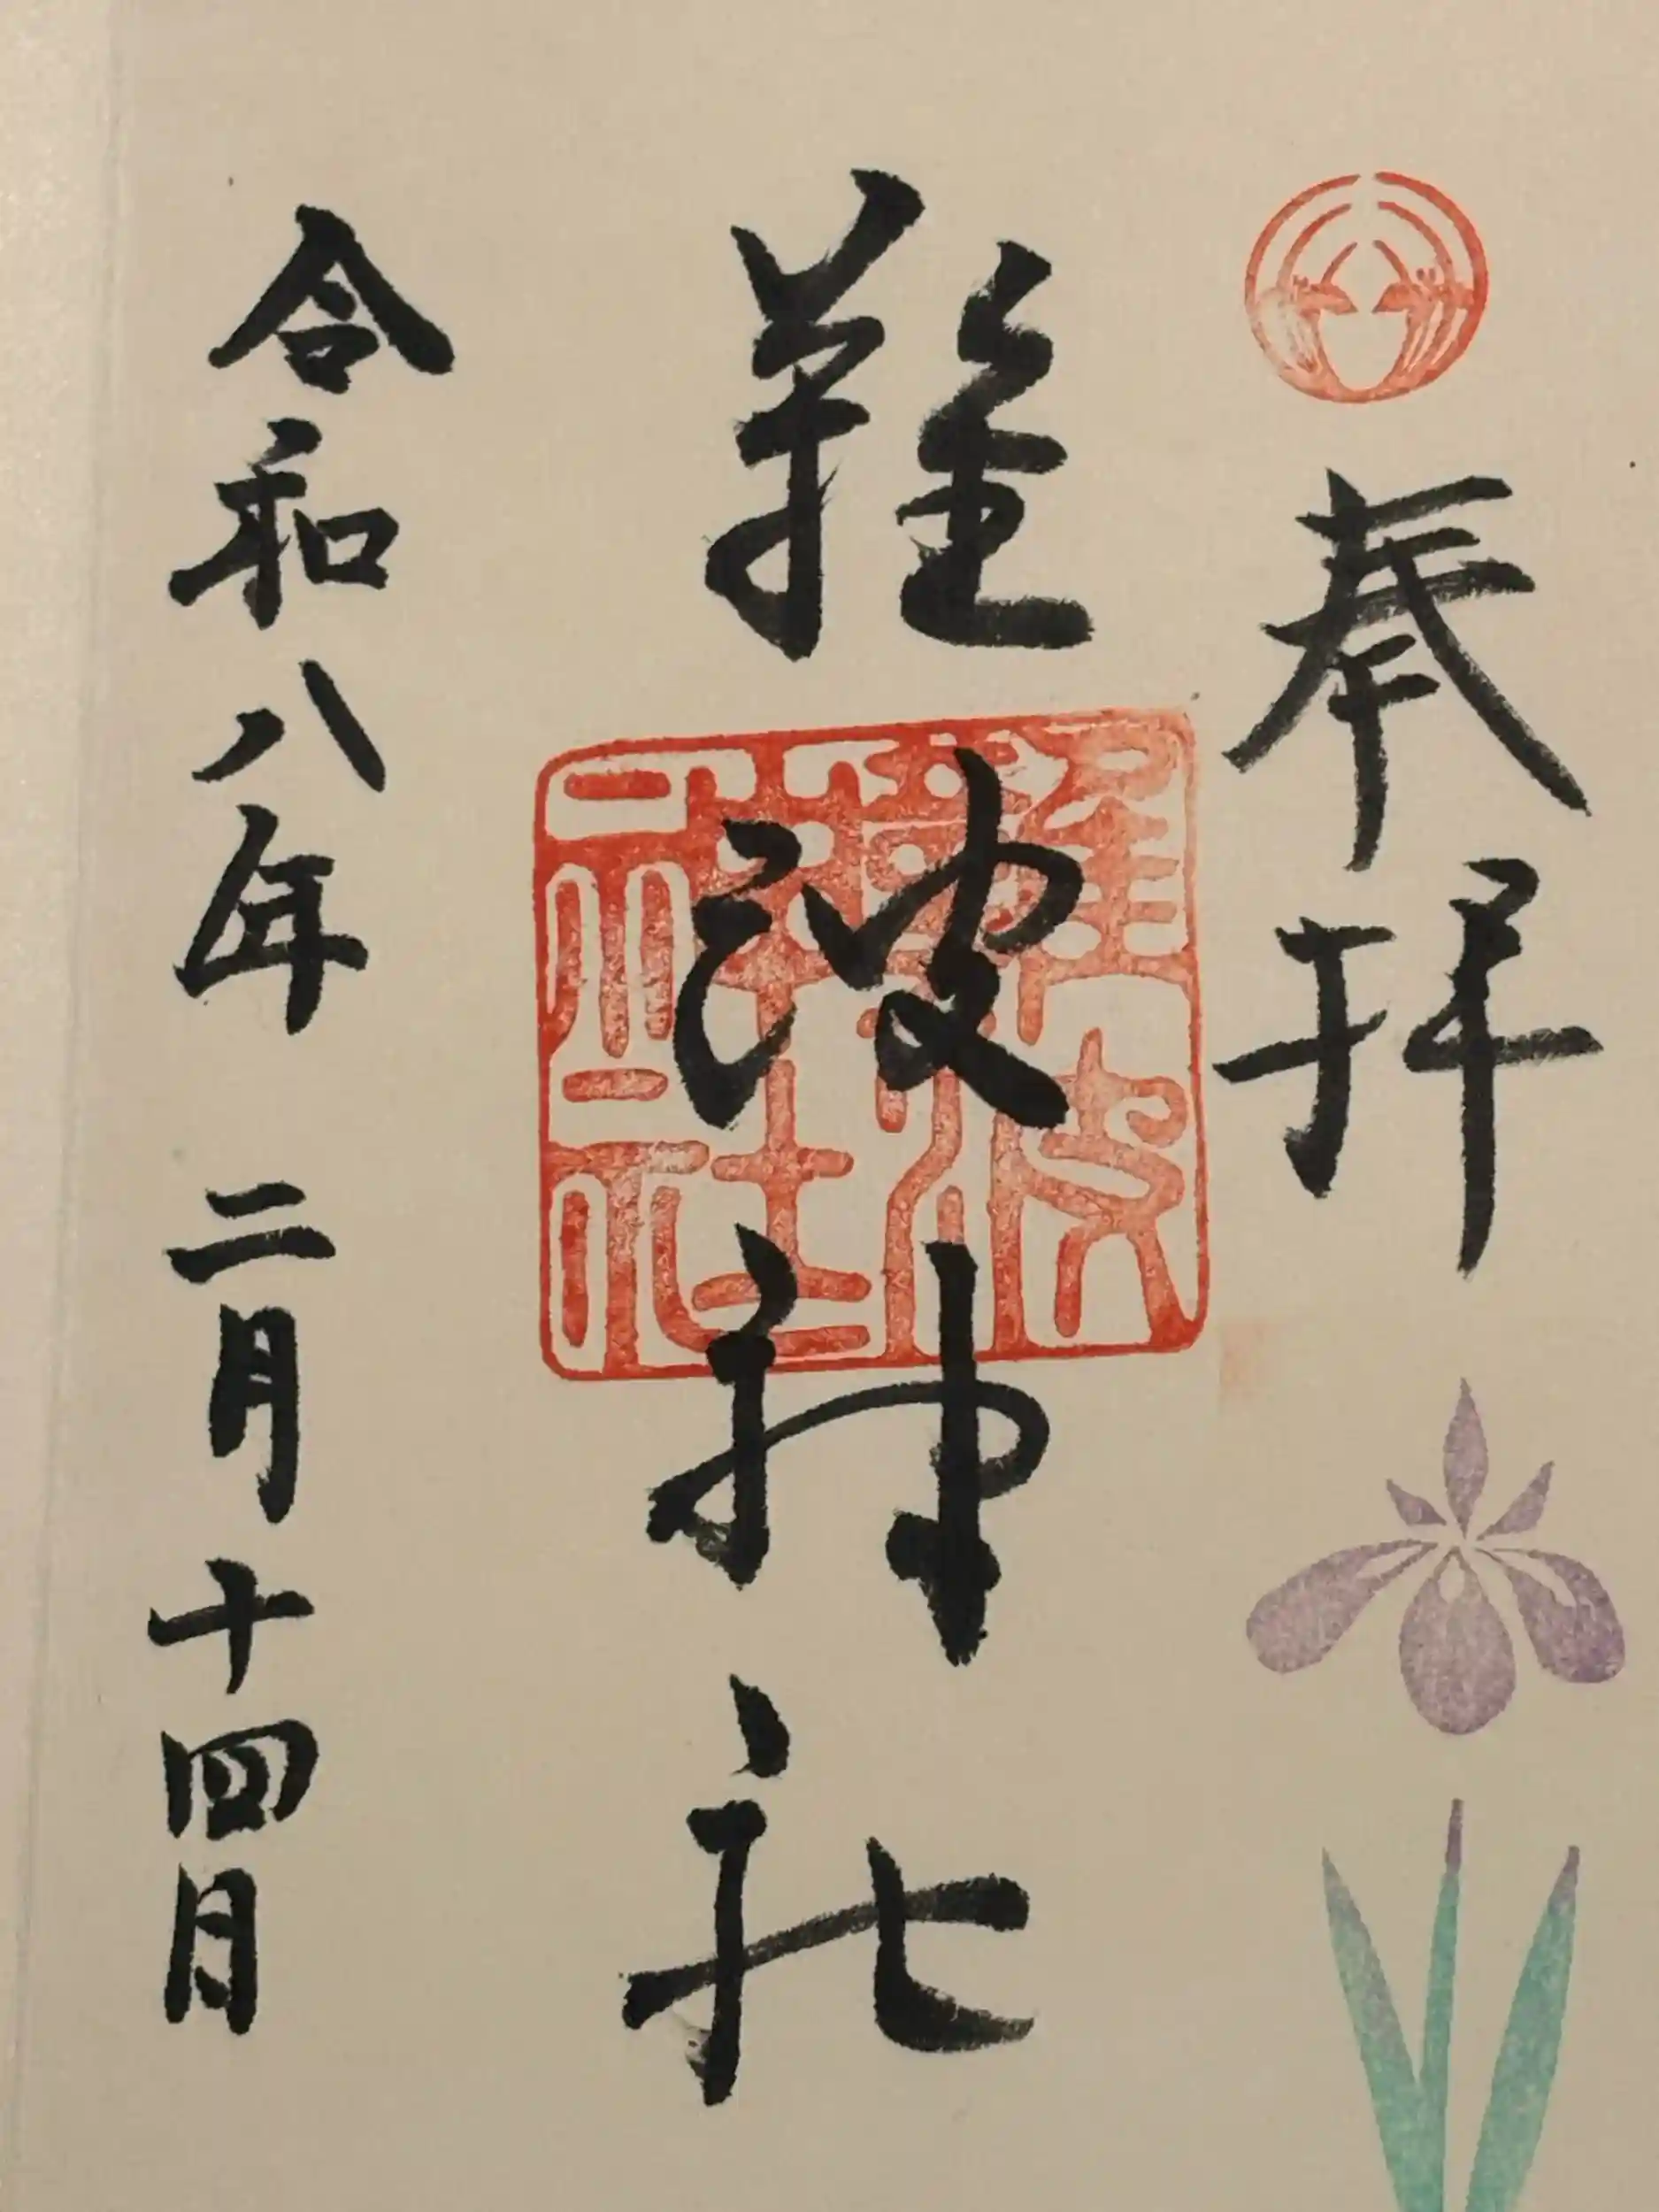 奉拝
難波神社
難波神社
令和八年 二月十四日